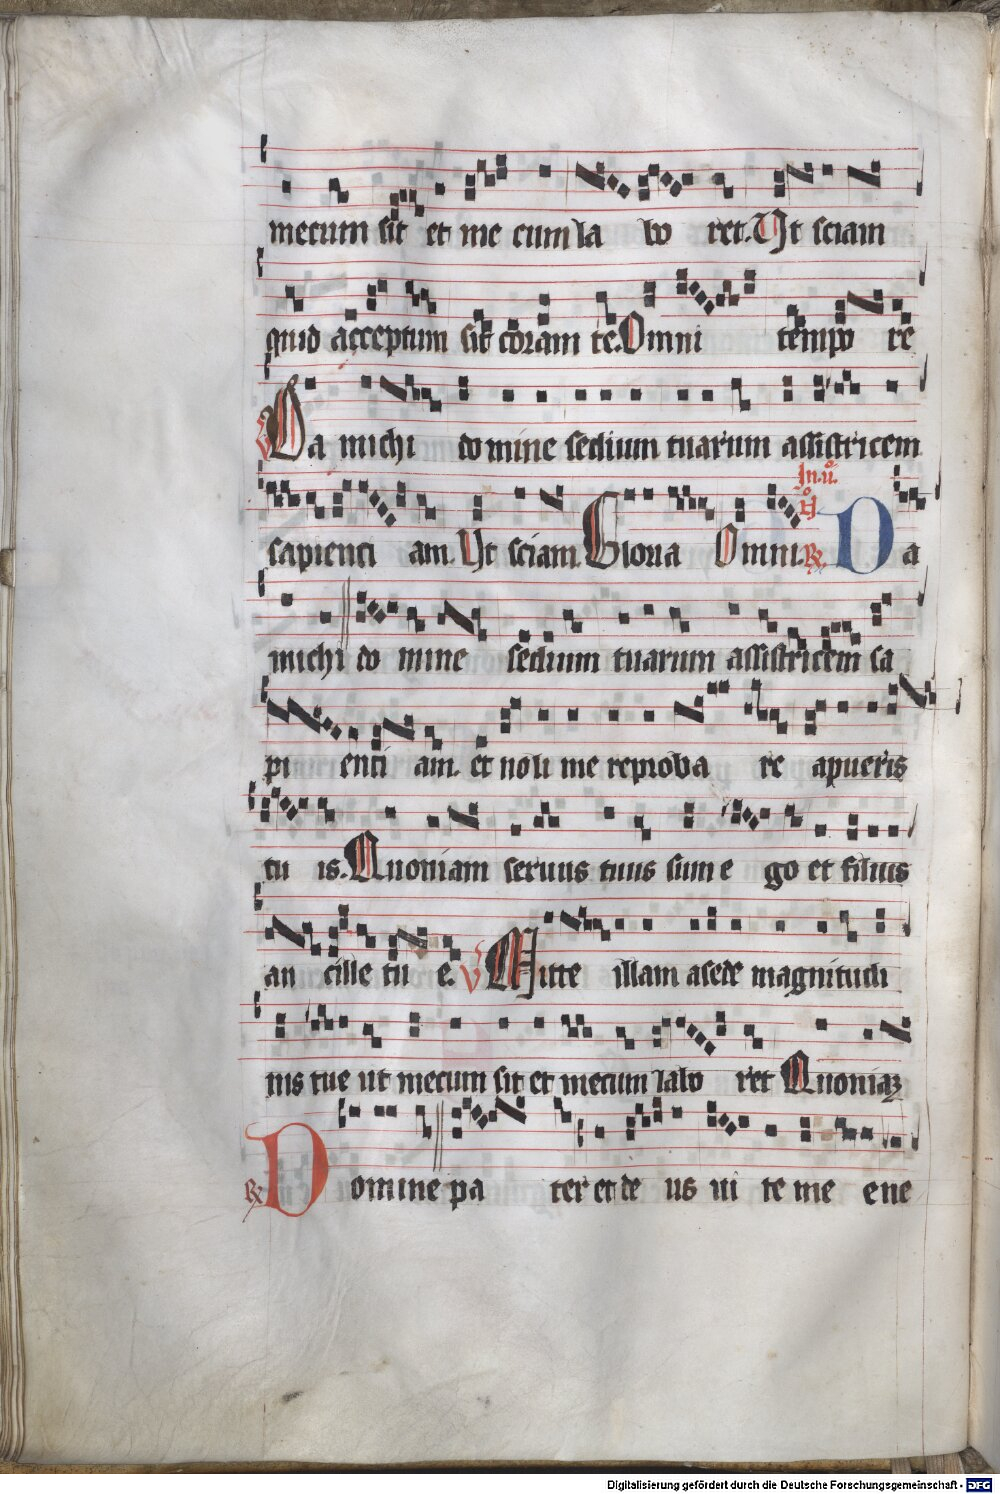 mecum sit et me cum la bo ret. Ut sciam
quid acceptum sit coram te. Omni tempo re
V Da michi do mine sedium tuarum assistricem
In. ii.
sapienti am. Ut sciam. Gloria Omni. R Da
michi do mine sedium tuarum assistricem sa
pi enti am. et noli me reproba re apueris
tu is. Quoniam seruus tuus sum e go et filius
an cille tu e. V Mitte illam asede magnitudi
nis tue ut mecum sit et mecum labo ret Quoniaz
R Domine pa ter et de us ui te me ene
Digitalisierung gefördert durch die Deutsche Forschungsgemeinschaft - DFG